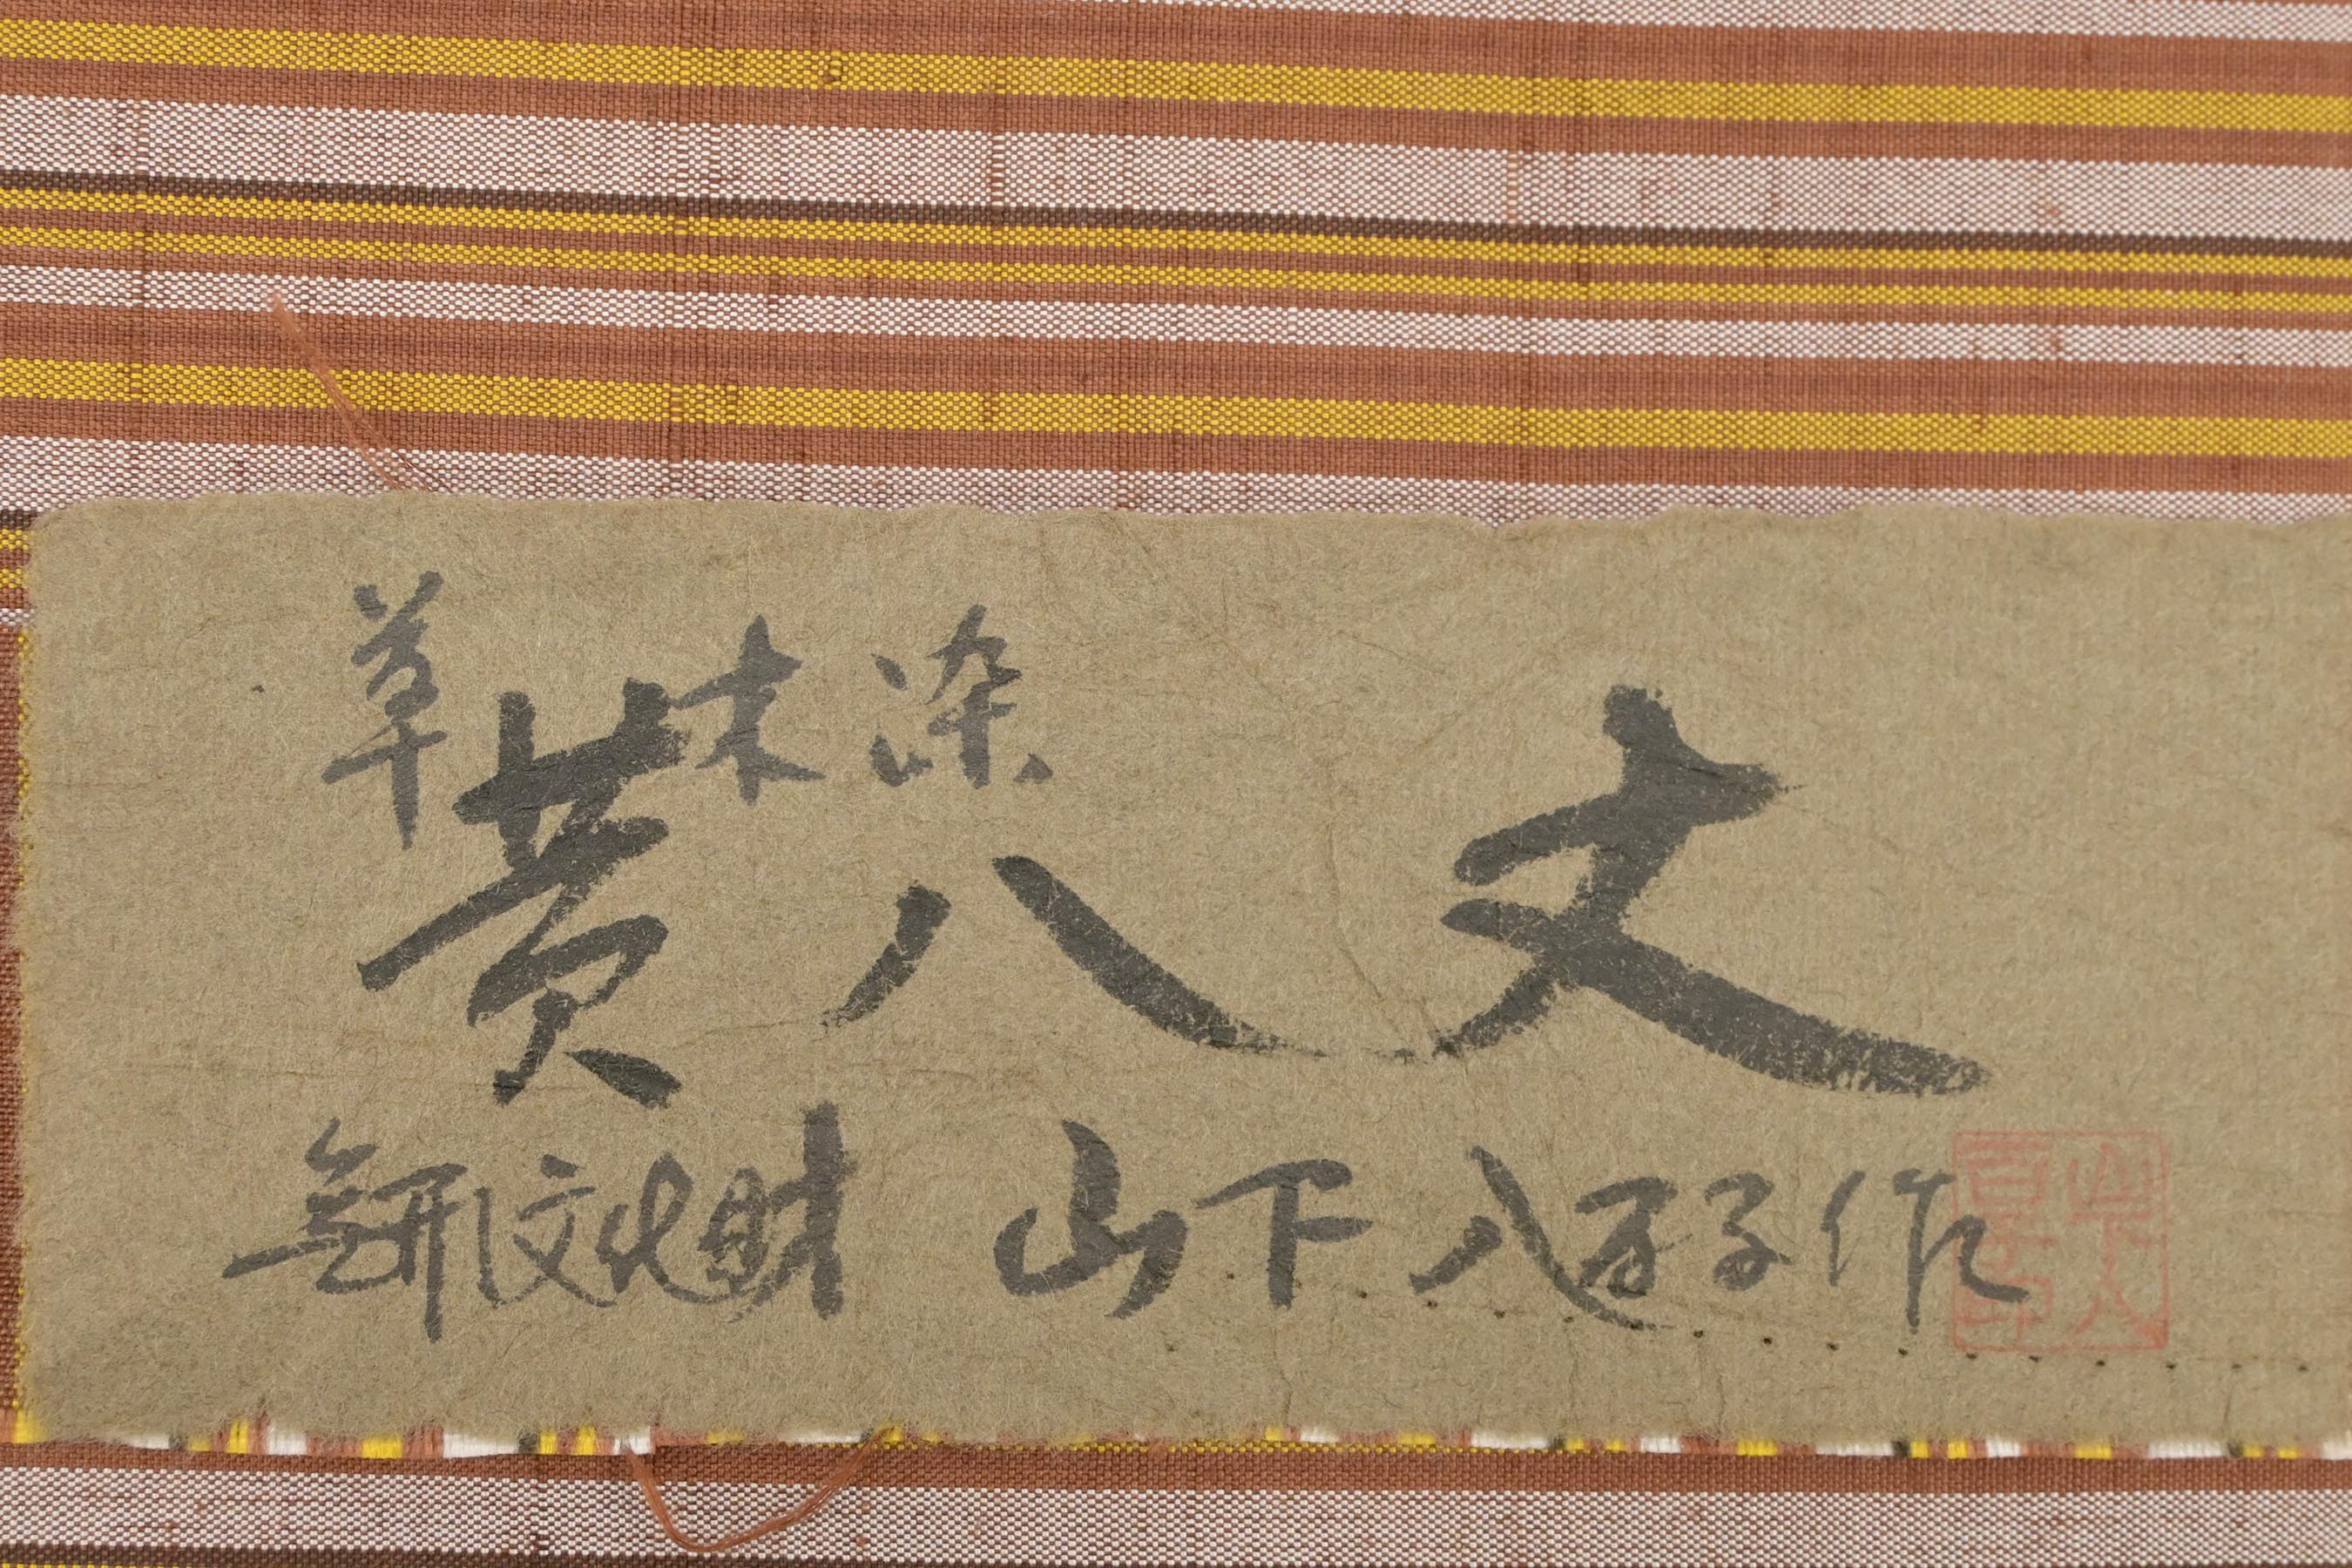 草木染
黄八丈
無形文化財 山下八百子作
山下八百子印